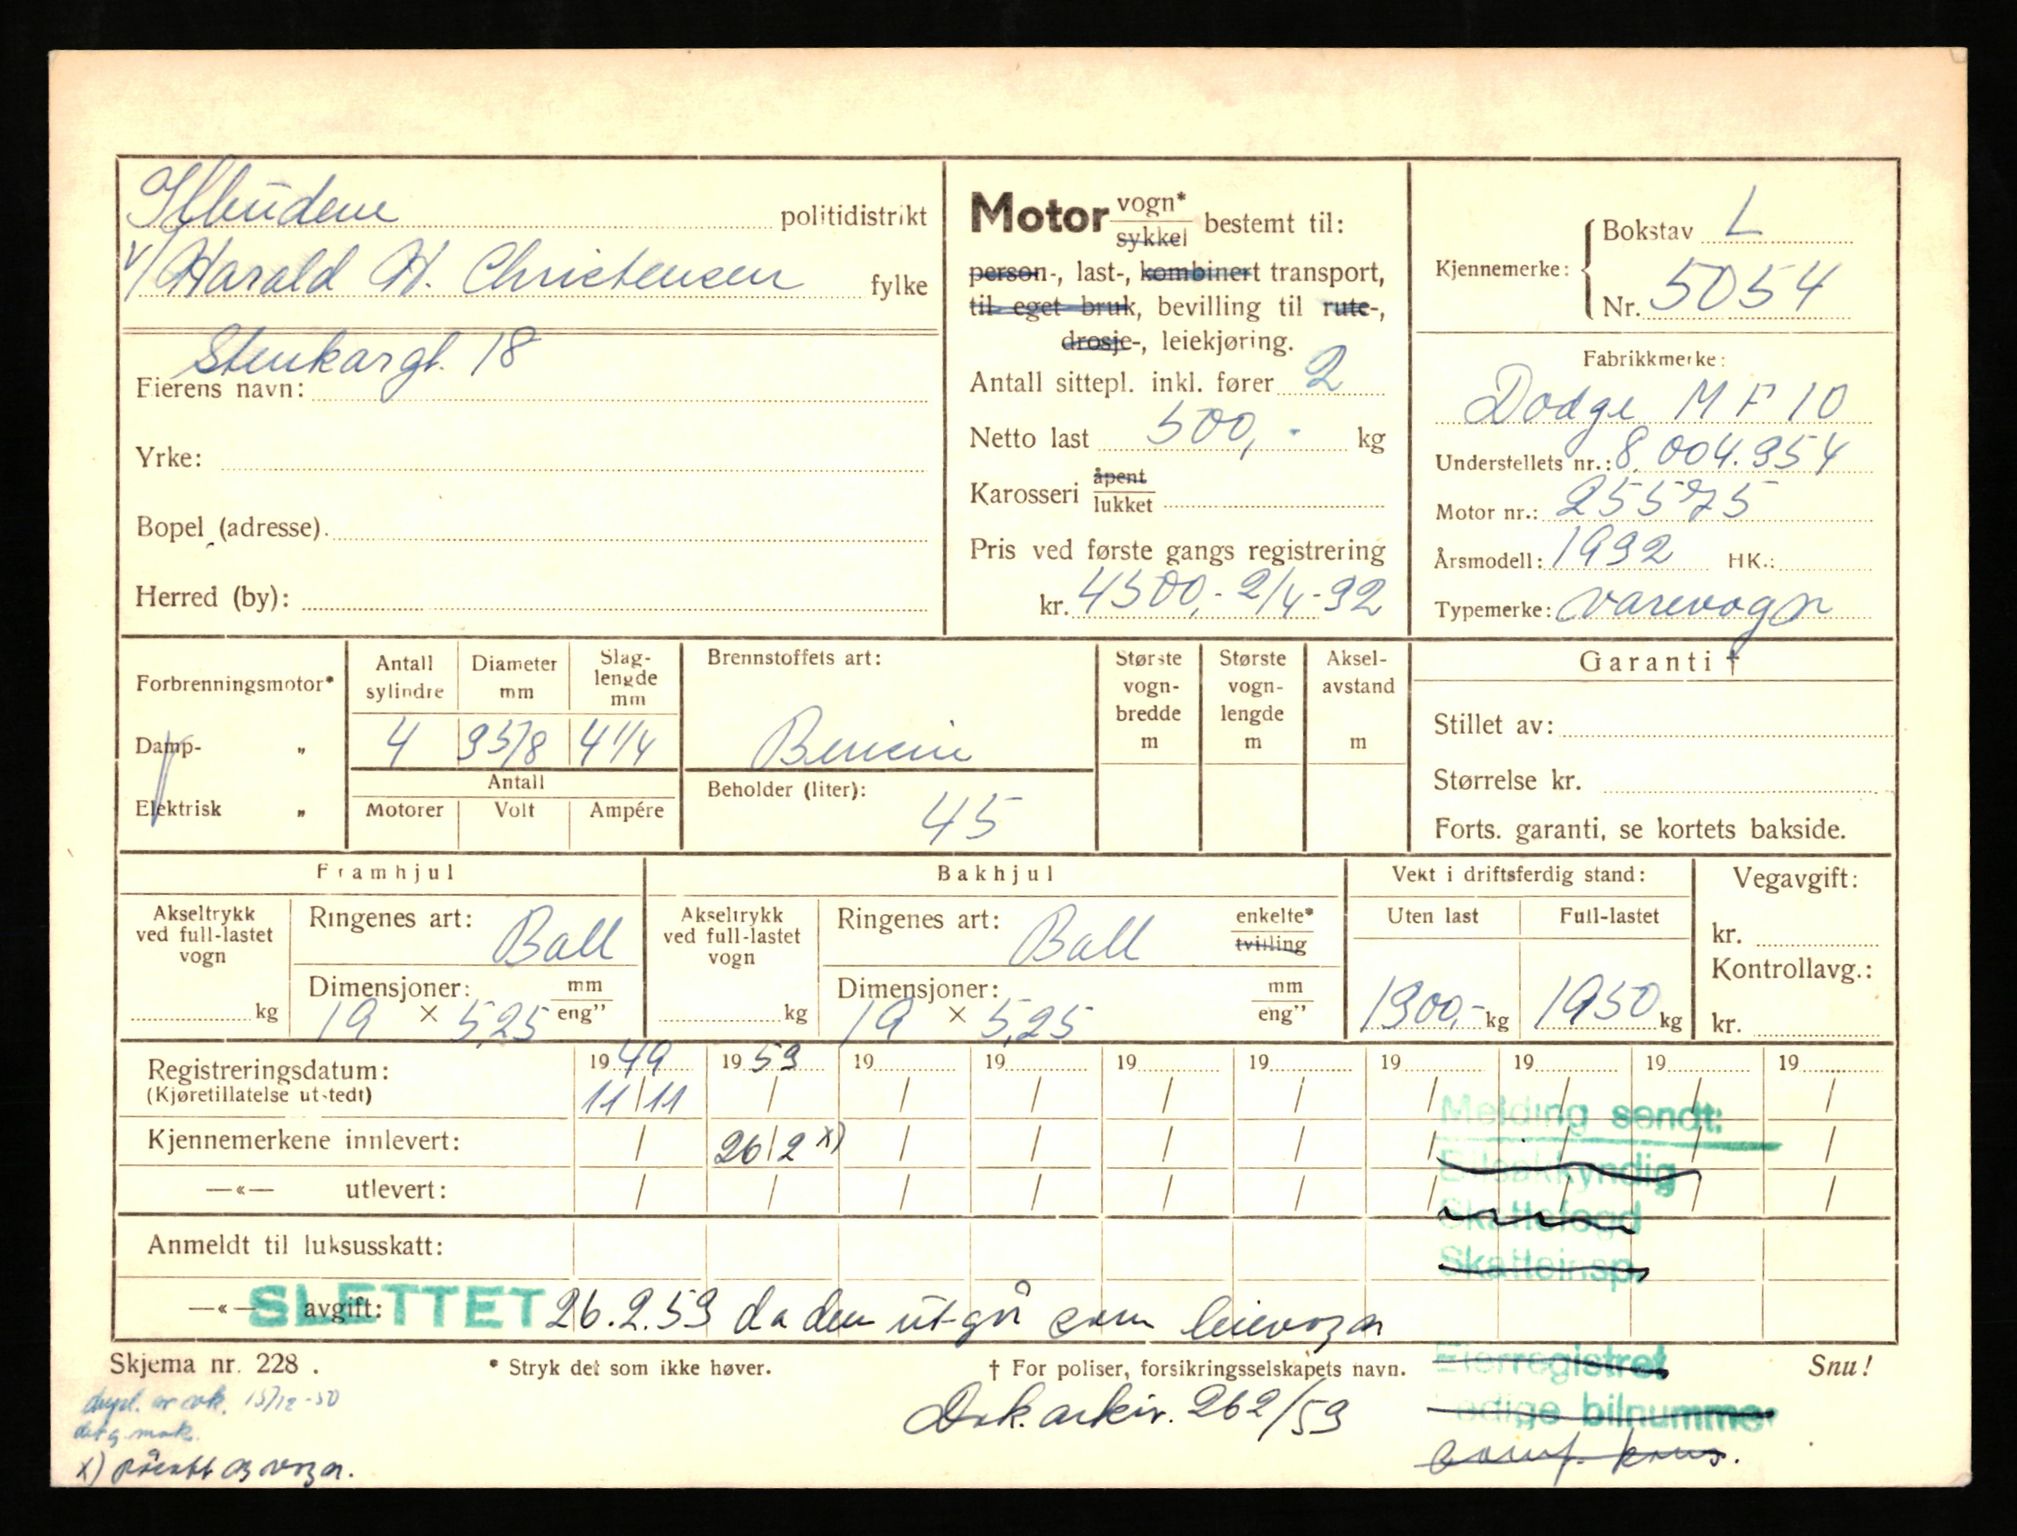 Ilbudene politidistrikt
v/ Harald H. Christensen fylke
Stenkargt. 18
Eierens navn:
Yrke:
Bopel (adresse).
Herred (by):
Motor vogn*
sykkel bestemt til:
person-, last-, kombinert transport,
til eget bruk, bevilling til rute-,
drosje-, leiekjøring.
Antall sittepl. inkl. fører 2
Netto last 500,- kg
Karosseri åpent
lukket
Pris ved første gangs registrering
kr. 4500,- 2/4-32
Kjennemerke: Bokstav L
Nr. 5054
Fabrikkmerke:
Dodge M F 10
Understellets nr.: 8.004.354
Motor nr.: 25575
Årsmodell: 1932 HK.:
Typemerke: varevogn
Forbrenningsmotor*
Damp- „
Elektrisk „
Antall sylindre
Diameter mm
Slaglengde mm
4 3 5/8 4 1/4
Antall
Motorer Volt Ampére
Brennstoffets art:
Bensin
Beholder (liter):
45
Største vognbredde m
Største vognlengde m
Akselavstand m
Garanti †
Stillet av:
Størrelse kr.
Forts. garanti, se kortets bakside.
Framhjul
Akseltrykk ved full-lastet vogn
kg
Ringenes art: Ball
Dimensjoner: mm
19 × 5,25 eng"
Bakhjul
Akseltrykk ved full-lastet vogn
kg
Ringenes art: Ball enkelte*
tvilling
Dimensjoner: mm
19 × 5,25 eng"
Vekt i driftsferdig stand:
Uten last Full-lastet
1300,- kg 1950 kg
Vegavgift:
kr.
Kontrollavg.:
kr.
Registreringsdatum: 19 49 19 53 19 19 19 19 19 19 19 19
(Kjøretillatelse utstedt) 11/11 / / / / / / / / /
Kjennemerkene innlevert: / 26/2 x) / / / / / / / /
—«— utlevert: / / / / / / / / / /
Anmeldt til luksusskatt:
—«— avgift: SLETTET 26.2.53 da den utgår som leievogn
Melding sendt:
Bilsakkyndig
Skattefogd
Skatteinsp.
Eierregistret
Ledige bilnummer
Skjema nr. 228.
* Stryk det som ikke høver.
† For poliser, forsikringsselskapets navn.
Snu!
Dok. arkiv. 262/53
dupl. av vk. 15/12-50
x) påsatt og vogn.